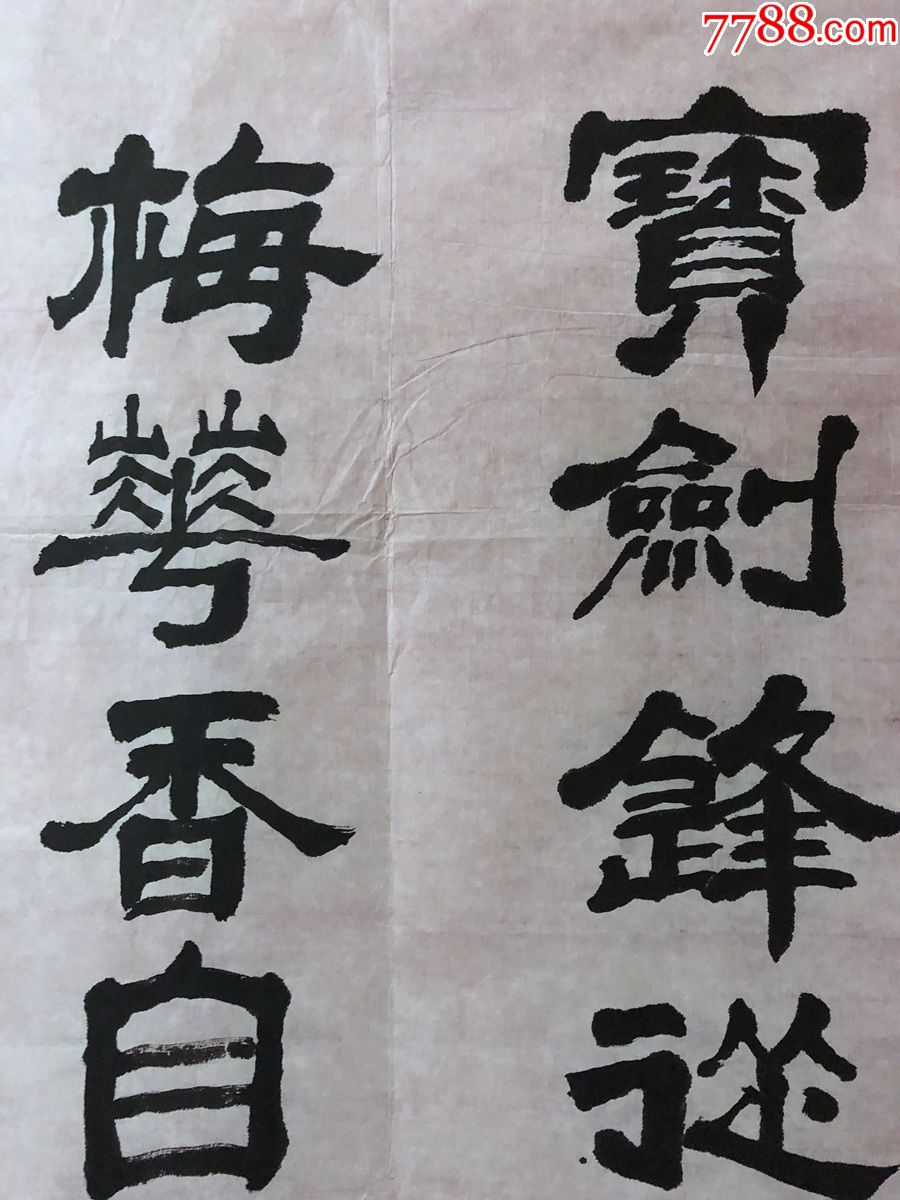 7788.com
寶劍鋒從
梅華香自